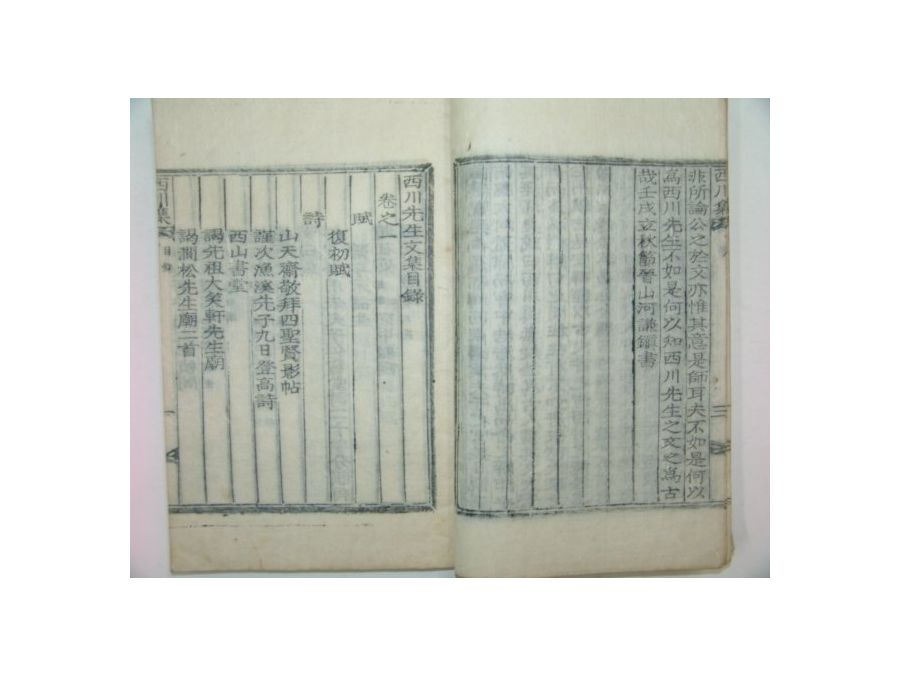 西川集
非所論公之於文亦惟其意是師耳夫不如是何以
為西川先生不如是何以知西川先生之文之為古
哉壬戌立秋節晉山河謙鎭書
西川先生文集目錄
卷之一
賦
復初賦
詩
山天齋敬拜四聖賢影帖
謹次漁溪先子九日登高詩
西山書堂
謁先祖大笑軒先生廟
謁澗松先生廟二首
西川集
目錄